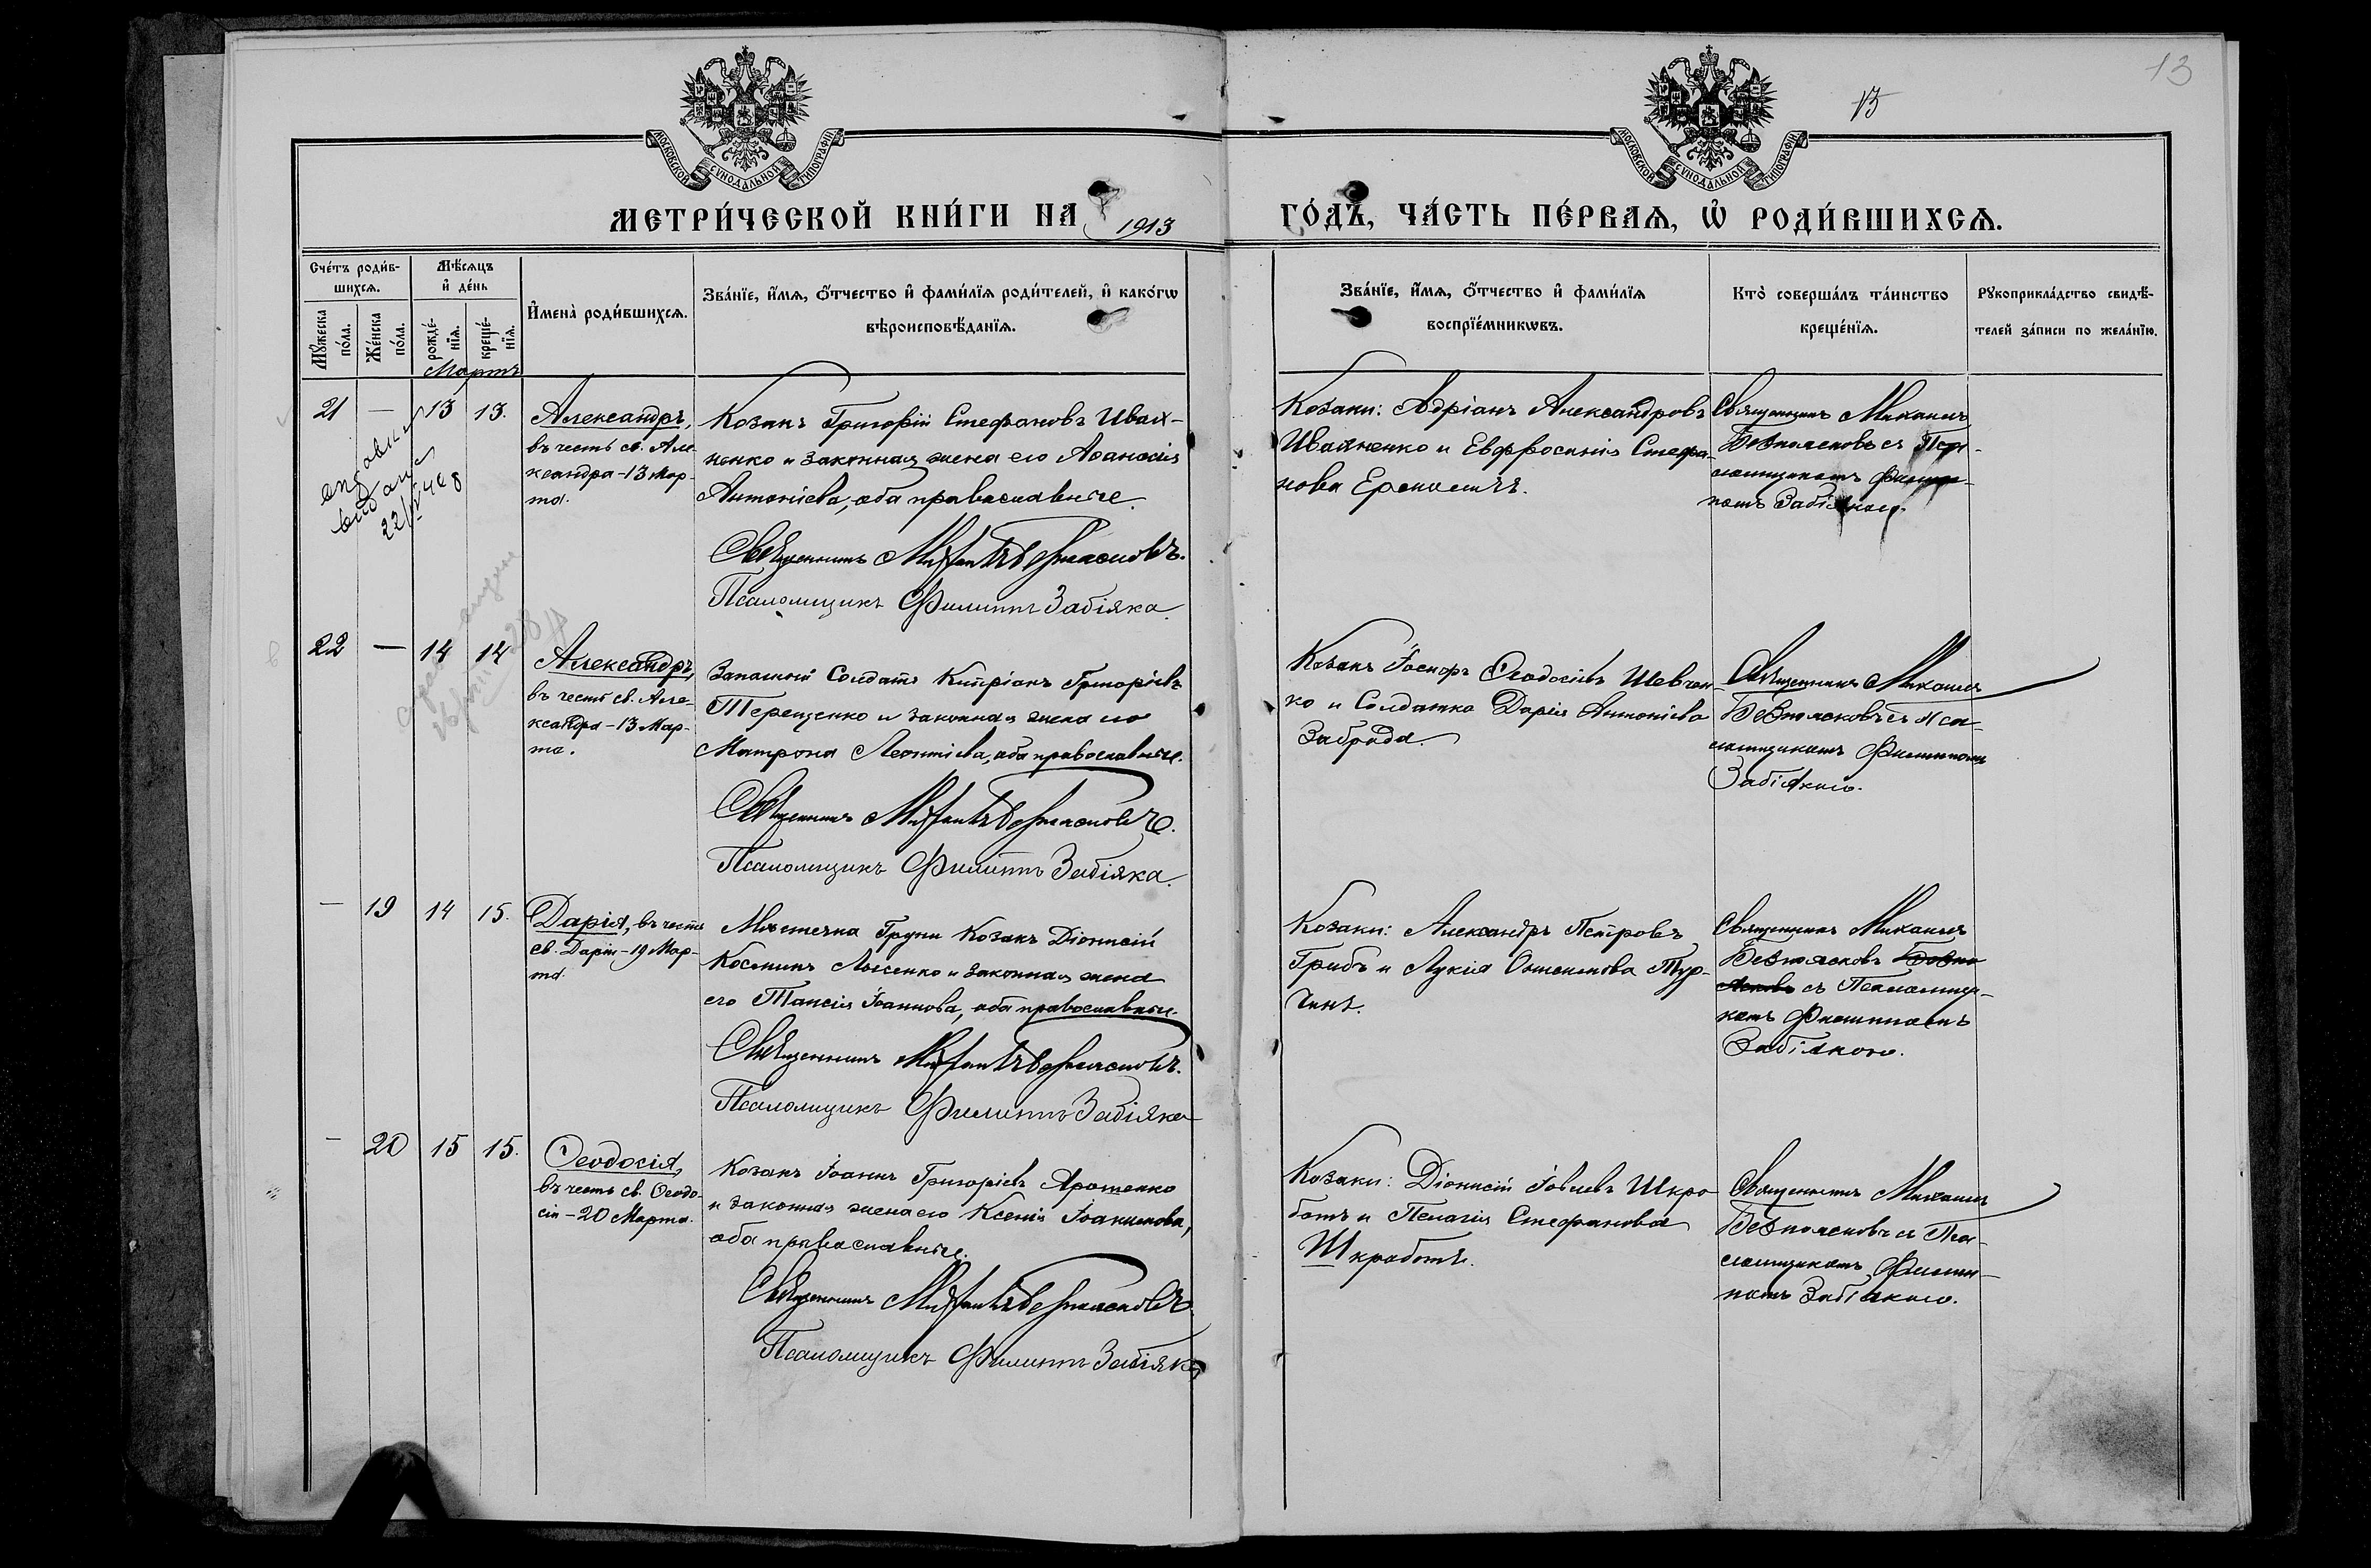 13
13
МОСКОВСКОЙ СѴНОДАЛЬНОЙ ТИПОГРАФІИ
МОСКОВСКОЙ СѴНОДАЛЬНОЙ ТИПОГРАФІИ
МЕТРИ́ЧЕСКОЙ КНИ́ГИ НА 1913 ГО́ДЪ, ЧА́СТЬ ПЕ́РВАѦ, Ѡ҆ РОДИ́ВШИХСѦ.
Сче́тъ роди́в-
шихсѧ.
Мꙋ́жеска по́ла.
Же́нска по́ла.
Мѣ́сѧцъ
и҆ де́нь
рожде́-
нїѧ.
креще́-
нїѧ.
И҆мена̀ роди́вшихсѧ.
Зва́нїе, и҆́мѧ, ѻ҆́тчество и҆ фами́лїѧ роди́телей, и҆ како́гѡ
вѣроисповѣ́данїѧ.
Зва́нїе, и҆́мѧ, ѻ҆́тчество и҆ фами́лїѧ
воспрїе́мникѡвъ.
Кто̀ соверша́лъ та́инство
креще́нїѧ.
Рꙋкоприкла́дство свидѣ́-
телей за́писи по жела́нїю.
Мартъ
21 — 13 13.
Александръ,
въ честь св. Але-
ксандра - 13 Мар-
та.
Козакъ Григорій Стефановъ Ивах-
ненко и законная жена его Аѳанасія
Антоніева, оба православные.
Священникъ Михаилъ Безпясковъ.
Псаломщикъ Филиппъ Забіяка.
Козаки: Адріанъ Александровъ
Ивахненко и Евфросинія Стефа-
нова
Священникъ Михаилъ
Безпясковъ съ Пса-
ломщикомъ Филип-
помъ Забіякою.
22/IV 408
22 — 14 14
Александръ,
въ честь св. Але-
ксандра - 13 Мар-
та.
Запасной Солдатъ Кипріанъ Григоріевъ
Терещенко и законная жена его
Матрона Леонтіева, оба православные.
Священникъ Михаилъ Безпясковъ.
Псаломщикъ Филиппъ Забіяка.
Козакъ Іосифъ Ѳеодосіевъ Шевчен-
ко и Солдатка Дарія Антоніева
Заброда.
Священникъ Михаилъ
Безпясковъ съ Пса-
ломщикомъ Филиппомъ
Забіякою.
— 19 14 15.
Дарія, въ честь
св. Даріи - 19 Мар-
та.
Мѣстечка Груни Козакъ Діонисій
Косминъ Лысенко и законная жена
его Таисія Іоаннова, оба православные.
Священникъ Михаилъ Безпясковъ.
Псаломщикъ Филиппъ Забіяка
Козаки: Александръ Петровъ
Грибъ и Лукія Тур-
чинъ.
Священникъ Михаилъ
Безпясковъ Безпя
сковъ съ Псаломщи-
комъ Филиппомъ
Забіякою.
— 20 15 15.
Ѳеодосія,
въ честь св. Ѳеодо-
сіи - 20 Марта.
Козакъ Іоаннъ Григоріевъ Ярошенко
и законная жена его Ксенія Іоакимова,
оба православные.
Священникъ Михаилъ Безпясковъ.
Псаломщикъ Филиппъ Забіяка
Козаки: Діонисій Іовлевъ Шкро
ботъ и Пелагія Стефанова
Шкработъ.
Священникъ Михаилъ
Безпясковъ съ Пса-
ломщикомъ Филип-
помъ Забіякою.